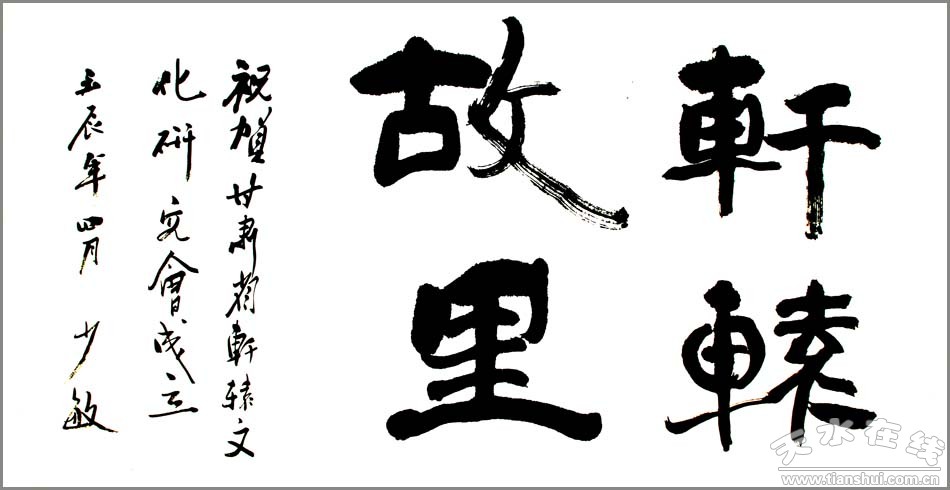 軒轅
故里
祝賀甘肅省軒轅文
化研究會成立
壬辰年四月 少敏
天水在线
www.tianshui.com.cn